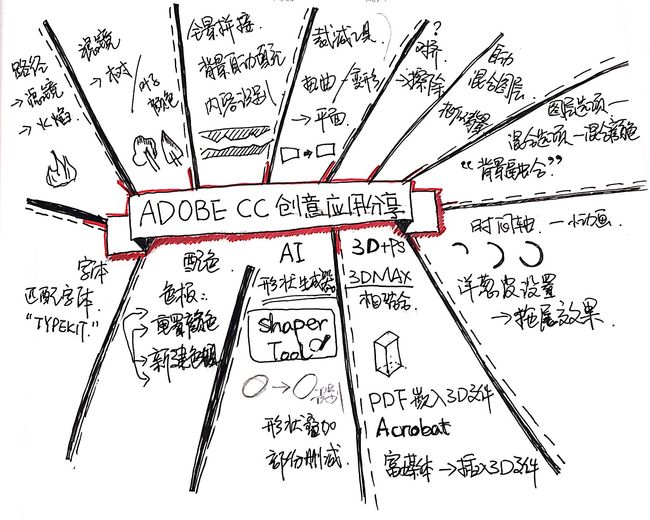 路径
→滤镜
→火焰
滤镜
→树
叶子
颜色
全景拼接
背景自动填充
内容识别
裁减工具
扭曲—变形
→平面
?
对挤
→擦除
自动
混合图层
背景
图层选项—
混合选项—混合颜色
“背景融合”
ADOBE CC 创意应用分享
时间轴 — 小动画
洋葱皮设置
→拖尾效果
字体
匹配字体
“TYPEKIT.”
配色
色板:
→重置颜色
→新建色组
AI
形状生成器
Shaper
Tool
形状叠加
部分删减
3D+PS
3DMAX
相结合
PDF嵌入3D文件
Acrobat
富媒体→插入3D文件